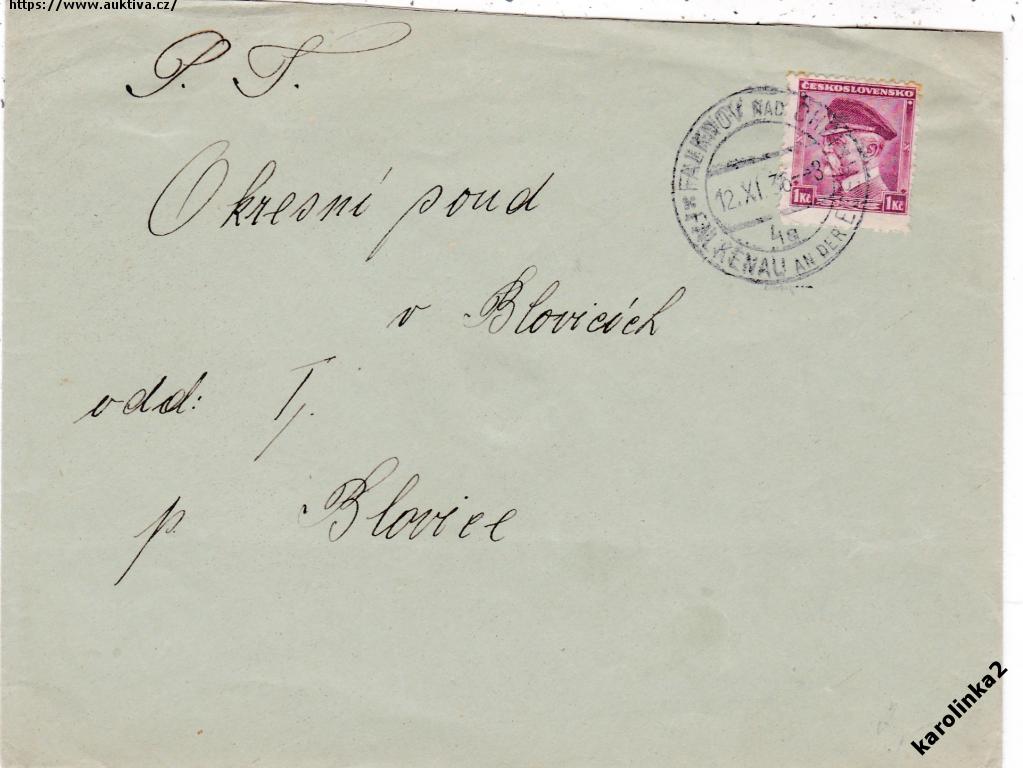 https://www.auktiva.cz/
P. T.
ČESKOSLOVENSKO
1Kč 1Kč
FALKNOV NAD OHŘÍ
12.XI.36.-3
4a
FALKENAU AN DER EGER
Okresní soud
v Blovicích
odd: I.
p. Blovice
karolinka2